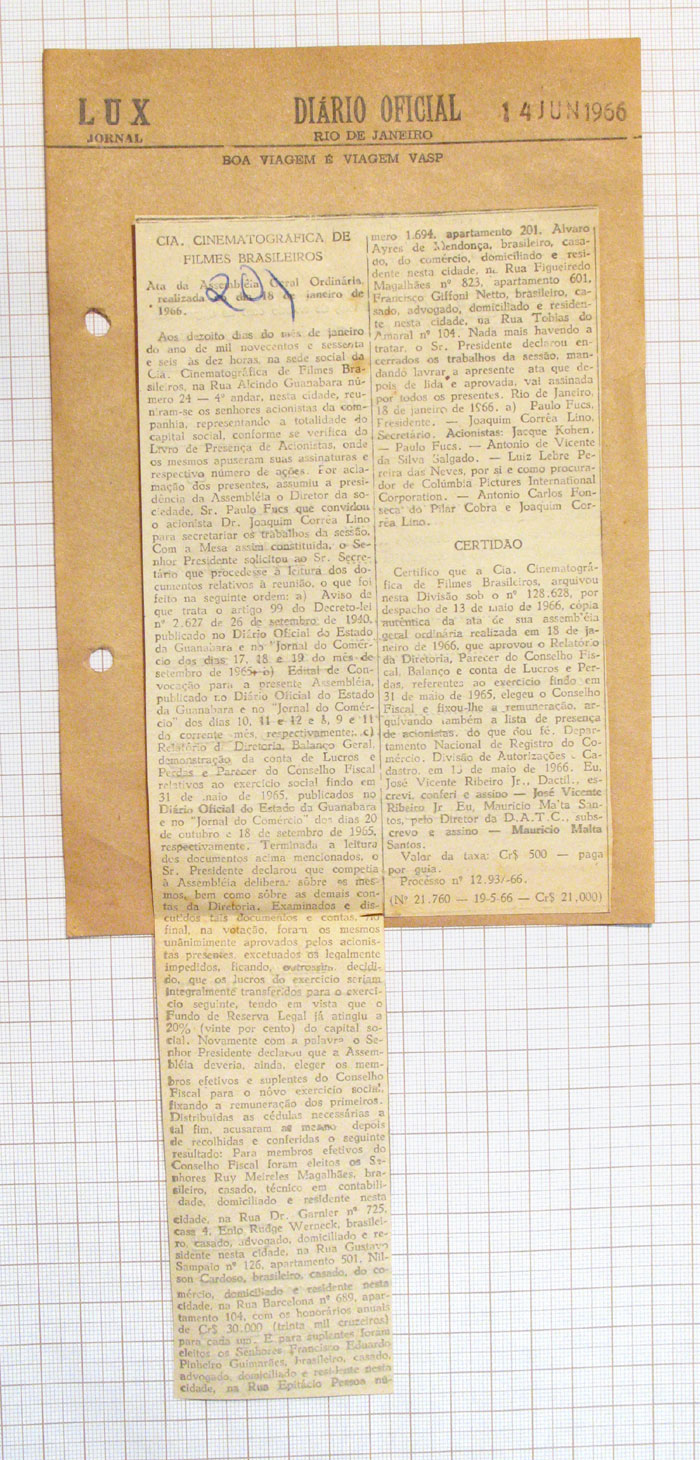 LUX
JORNAL
DIÁRIO OFICIAL
RIO DE JANEIRO
14 JUN 1966
BOA VIAGEM É VIAGEM VASP
CIA. CINEMATOGRÁFICA DE
FILMES BRASILEIROS
201
Ata da Assembléia Geral Ordinária,
realizada dia 18 de janeiro de
1966.
Aos dezoito dias do mês de janeiro
do ano de mil novecentos e sessenta
e seis às dez horas, na sede social da
Cia. Cinematográfica de Filmes Bra-
sileiros, na Rua Alcindo Guanabara nú-
mero 24 — 4º andar, nesta cidade, reu-
niram-se os senhores acionistas da com-
panhia, representando a totalidade do
capital social, conforme se verifica da
Livro de Presença de Acionistas, onde
os mesmos apuseram suas assinaturas e
respectivo número de ações. Por acla-
mação dos presentes, assumiu a presi-
dência da Assembléia o Diretor da so-
ciedade, Sr. Paulo Fucs que convidou
o acionista Dr. Joaquim Corrêa Lino
para secretariar os trabalhos da sessão.
Com a Mesa assim constituída, o Se-
nhor Presidente solicitou ao Sr. Secre-
tário que procedesse à leitura dos do-
cumentos relativos à reunião, o que foi
feito na seguinte ordem: a) Aviso de
que trata o artigo 99 do Decreto-lei
nº 2.627 de 26 de setembro de 1940,
publicado no Diário Oficial do Estado
da Guanabara e no "Jornal do Comér-
cio dos dias 17, 18 e 19 do mês de
setembro de 1965; b) Edital de Con-
vocação para a presente Assembléia,
publicado no Diário Oficial do Estado
da Guanabara e no "Jornal do Comér-
cio" dos dias 10, 11 e 12 e 8, 9 e 11
do corrente mês, respectivamente; c)
Relatório d Diretoria, Balanço Geral,
demonstração da conta de Lucros e
Perdas e Parecer do Conselho Fiscal
relativos ao exercício social findo em
31 de maio de 1965, publicados no
Diário Oficial do Estado da Guanabara
e no "Jornal do Comércio" dos dias 20
de outubro e 18 de setembro de 1965,
respectivamente. Terminada a leitura
dos documentos acima mencionados, o
Sr. Presidente declarou que competia
à Assembléia deliberar sôbre os mes-
mos, bem como sôbre as demais con-
tas da Diretoria. Examinados e dis-
cutidos tais documentos e contas, no
final, na votação, foram os mesmos
unânimimente aprovados pelos acionis-
tas presentes, excetuados os legalmente
impedidos, ficando, outrossim, decidi-
do, que os lucros do exercício seriam
integralmente transferidos para o exercí-
cio seguinte, tendo em vista que o
Fundo de Reserva Legal já atingiu a
20% (vinte por cento) do capital so-
cial. Novamente com a palavra o Se-
nhor Presidente declarou que a Assem-
bléia deveria, ainda, eleger os mem-
bros efetivos e suplentes do Conselho
Fiscal para o nôvo exercício social,
fixando a remuneração dos primeiros.
Distribuídas as cédulas necessárias a
tal fim, acusaram as mesmo depois
de recolhidas e conferidas o seguinte
resultado: Para membros efetivos do
Conselho Fiscal foram eleitos os Se-
nhores Ruy Meireles Magalhães, bra-
sileiro, casado, técnico em contabili-
dade, domiciliado e residente nesta
cidade, na Rua Dr. Garnier nº 725,
casa 4, Enio Rudge Werneck, brasilei-
ro, casado, advogado, domiciliado e re-
sidente nesta cidade, na Rua Gustavo
Sampaio nº 126, apartamento 501, Nil-
son Cardoso, brasileiro, casado, do co-
mércio, domiciliado e residente nesta
cidade, na Rua Barcelona nº 689, apar-
tamento 104, com os honorários anuais
de Cr$ 30.000 (trinta mil cruzeiros)
para cada um. E para suplentes foram
eleitos os Senhores Francisco Eduardo
Pinheiro Guimarães, brasileiro, casado,
advogado, domiciliado e residente nesta
cidade, na Rua Epitácio Pessoa nú-
mero 1.694, apartamento 201, Alvaro
Ayres de Mendonça, brasileiro, casa-
do, do comércio, domiciliado e resi-
dente nesta cidade, na Rua Figueiredo
Magalhães nº 823, apartamento 601,
Francisco Giffoni Netto, brasileiro, ca-
sado, advogado, domiciliado e residen-
te nesta cidade, na Rua Tobias do
Amaral nº 104. Nada mais havendo a
tratar, o Sr. Presidente declarou en-
cerrados os trabalhos da sessão, man-
dando lavrar a apresente ata que de-
pois de lida e aprovada, vai assinada
por todos os presentes. Rio de Janeiro,
18 de janeiro de 1966. a) Paulo Fucs,
Presidente. — Joaquim Corrêa Lino,
Secretário. Acionistas: Jacque Kohen.
— Paulo Fucs. — Antonio de Vicente
da Silva Salgado. — Luiz Lebre Pe-
reira das Neves, por si e como procura-
dor de Colúmbia Pictures International
Corporation. — Antonio Carlos Fon-
seca do Pilar Cobra e Joaquim Cor-
rêa Lino.
CERTIDÃO
Certifico que a Cia. Cinematográ-
fica de Filmes Brasileiros, arquivou
nesta Divisão sob o nº 128.628, por
despacho de 13 de maio de 1966, cópia
autêntica da ata de sua assembléia
geral ordinária realizada em 18 de ja-
neiro de 1966, que aprovou o Relatório
da Diretoria, Parecer do Conselho Fis-
cal, Balanço e conta de Lucros e Per-
das, referentes ao exercício findo em
31 de maio de 1965, elegeu o Conselho
Fiscal e fixou-lhe a remuneração, ar-
quivando também a lista de presença
de acionistas, do que dou fé. Depar-
tamento Nacional de Registro do Co-
mércio, Divisão de Autorizações e Ca-
dastro, em 13 de maio de 1966. Eu,
José Vicente Ribeiro Jr., Dactil., es-
crevi, conferi e assino — José Vicente
Ribeiro Jr. Eu, Maurício Malta San-
tos, pelo Diretor da D.A.T.C., subs-
crevo e assino — Maurício Malta
Santos.
Valor da taxa: Cr$ 500 — paga
por guia.
Processo nº 12.937-66.
(Nº 21.760 — 19-5-66 — Cr$ 21.000)